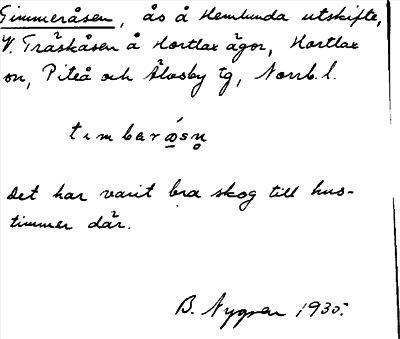 Timmeråsen, ås å Hemlunda utskifte,
V. Träskåsen å Hortlax ägor, Hortlax
sn, Piteå och Älvsby tg, Norrb. l.
timbarǿsn̥
Det har varit bra skog till hus-
timmer där.
B. Nygren 1930.